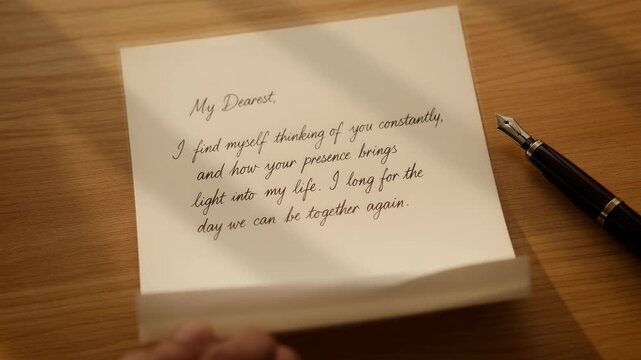 My Dearest,
I find myself thinking of you constantly,
and how your presence brings
light into my life. I long for the
day we can be together again.